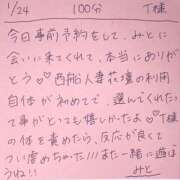 1/24 100分 T様
今日事前予約をして、みとに
会いに来てくれて、本当にありが
とう♡♡西船人妻花壇の利用
自体が初めてで、選んでくれた
て事がとても嬉しかたよ♡T様
の体を責めたら、反応が良くて
つい虐めちゃた///また一緒に遊ぼ
うね!!
みと